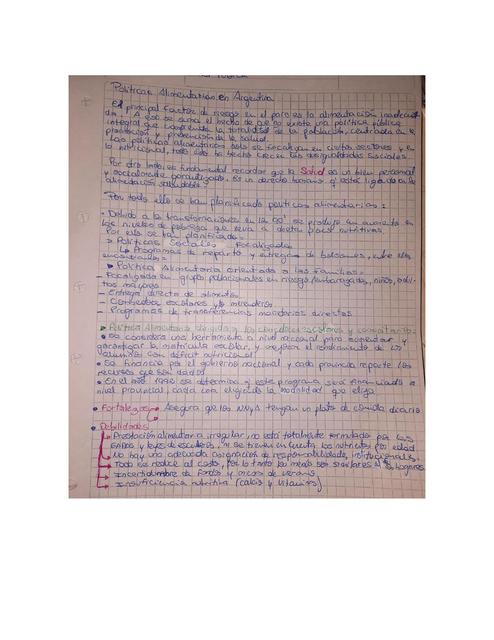 Políticas Alimentarias en Argentina
El principal factor de riesgo en el país es la alimentación inadecua
da. A eso se suma el hecho de que no existe una política pública
integral que comprenda la totalidad de la población, centrada en la
promoción y prevención de la salud
Las políticas alimentarias solo se focalizan en ciertos sectores y en
lo nutricional, todo esto ha hecho crecer las desigualdades sociales.
Por otro lado, es fundamental recordar que la Salud es un bien personal
y socialmente garantizado. Es un derecho humano y está ligado a la
alimentación saludable.
Por todo ello se han planificado políticas alimentarias:
- Debido a la transformaciones en los 90' se produjo un aumento en
los niveles de pobreza que lleva a dietas poco nutritivas
Por ello se han planificado:
> Políticas Sociales Focalizadas
↳ Programas de reparto y entrega de bolsones, entre ellos
encontramos:
▸ Política Alimentaria orientada a las Familias:
- Focalizada en grupos relacionales en riesgo (embarazadas, niños, adul-
tos mayores
- Entrega directa de alimentos
- Comedores escolares y/o merenderos
- Programas de transferencias monetarias directas
▸ Política Alimentaria dirigida a los comedores escolares y comunitario
• Se considera una herramienta a nivel nacional para aumentar y
garantizar la matrícula escolar, y mejorar el rendimiento de los
alumnos con déficit nutricional
• Se financia por el gobierno nacional y cada provincia reporte los
recursos que son dados
• En el año 1998 se determina q este programa será financiado a
nivel provincial, cada una eligiendo la modalidad que elija
• Fortalezas: Asegura que los NNyA tengan un plato de comida diario
• Debilidades
Prestación alimentaria irregular, no está totalmente formulado por las
GAPAS y leyes de escuelas, ni se tienen en cuenta los nutrientes por edad
No hay una adecuada asignación de responsabilidades, institucionales.
Todo se reduce al costo, por lo tanto los menús son similares a los hogares
Incertidumbre de fondos, y cierre de verano
Insuficiencia nutritiva (calcio y vitaminas)